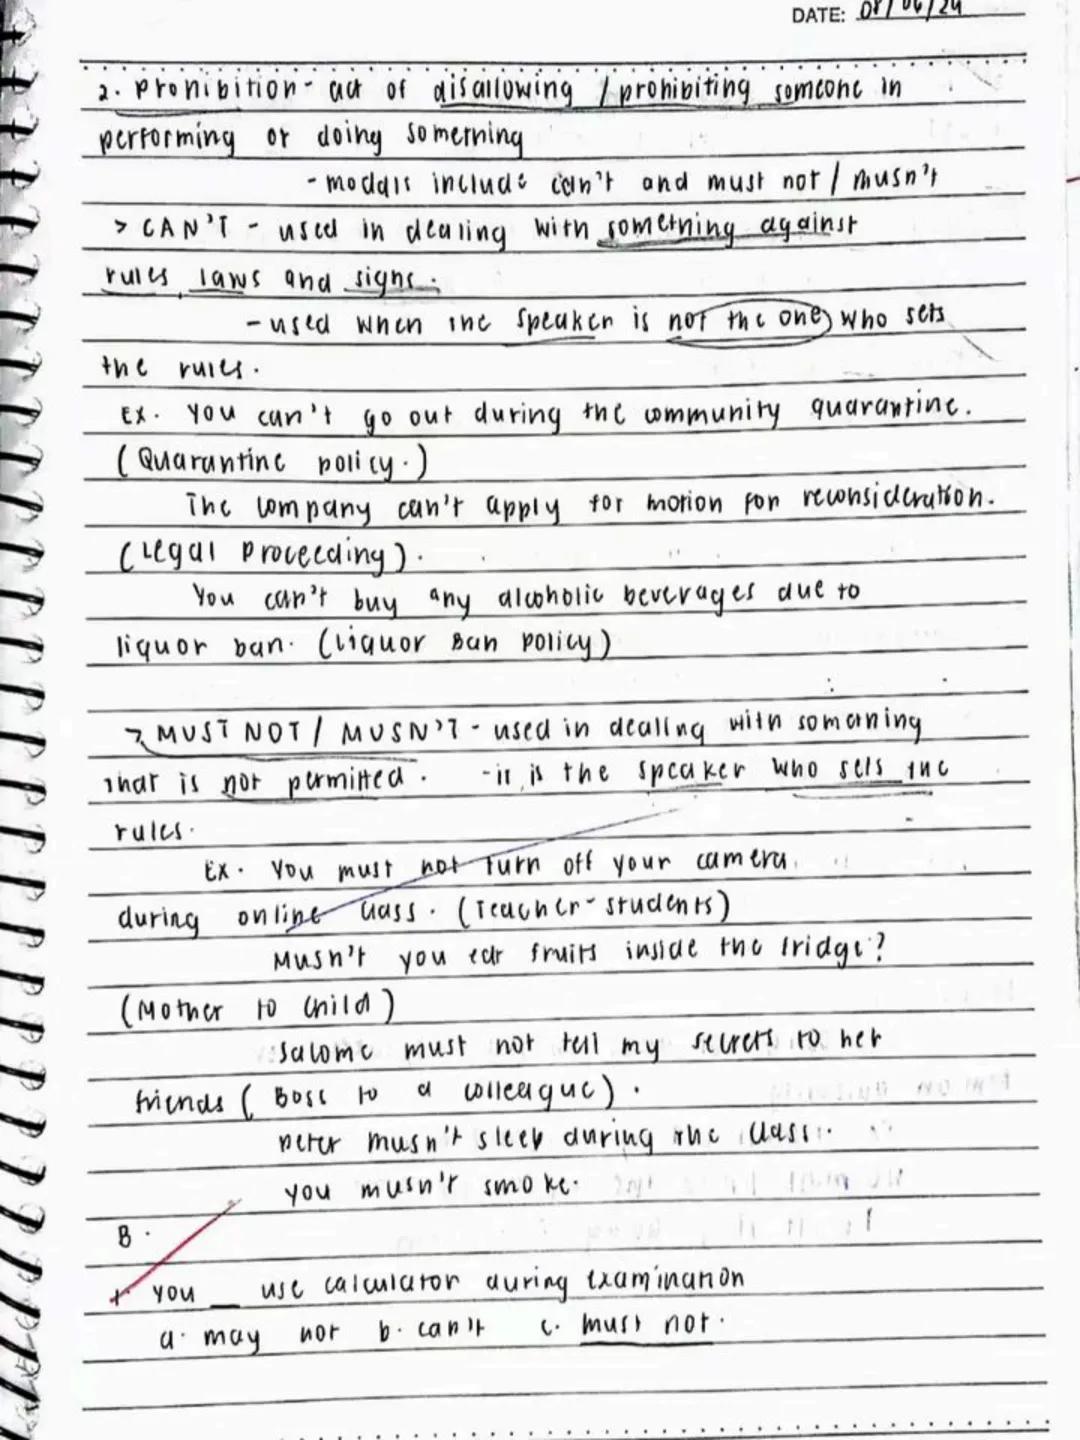 DATE: 08/06/24
2. Prohibition - act of disallowing / prohibiting someone in
performing or doing something
- modals include can't and must not / musn't
> CAN'T - used in dealing with something against
rules, laws and signs.
- used when the speaker is not the one who sets
the rules.
Ex. You can't go out during the community quarantine.
(Quarantine policy.)
The company can't apply for motion for reconsideration.
(Legal Proceeding).
You can't buy any alcoholic beverages due to
liquor ban. (Liquor Ban Policy)
> MUST NOT / MUSN'T - used in dealing with something
that is not permitted. - it is the speaker who sets the
rules.
Ex. You must not turn off your camera
during online class. (Teacher - students)
Musn't you eat fruits inside the fridge?
(Mother to Child)
Salome must not tell my secrets to her
friends (Boss to a colleague).
Peter musn't sleep during the class.
you musn't smoke.
B.
1. You __ use calculator during examination
a. may not b. can't c. must not.